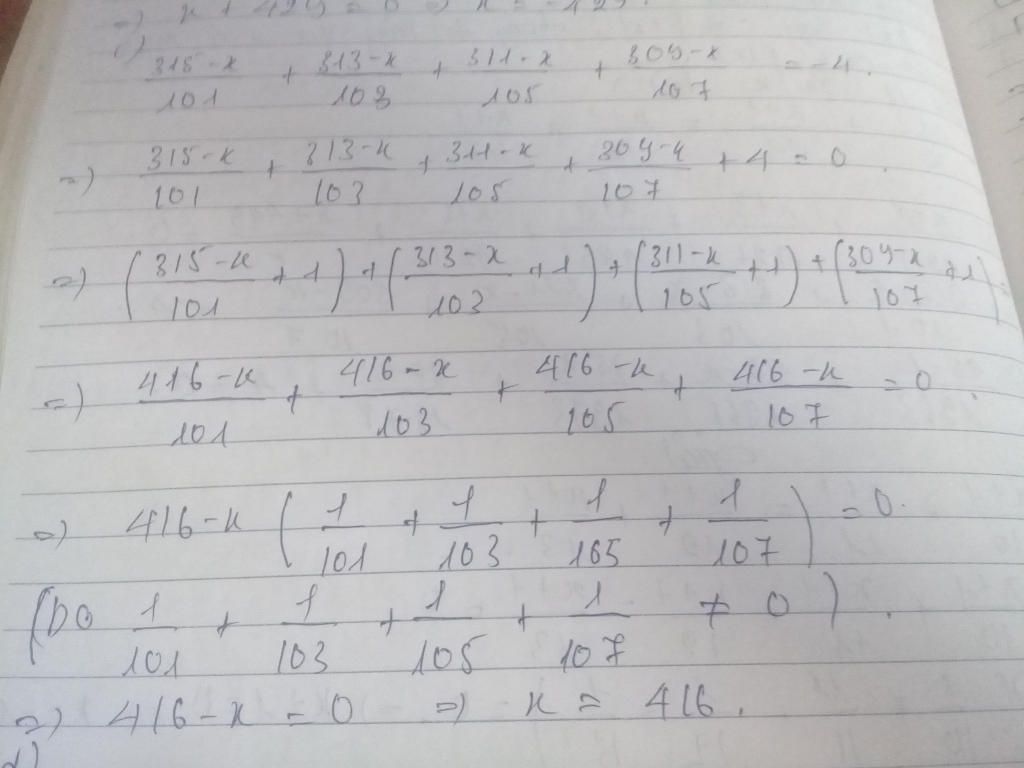 =) x + 429 = 0 =) x = -429.
c) 
315-x/101 + 313-x/103 + 311-x/105 + 309-x/107 = -4.
=) 315-x/101 + 313-x/103 + 311-x/105 + 309-x/107 + 4 = 0.
=) (315-x/101 + 1) + (313-x/103 + 1) + (311-x/105 + 1) + (309-x/107 + 1) =
=) 416-x/101 + 416-x/103 + 416-x/105 + 416-x/107 = 0.
=) 416-x (1/101 + 1/103 + 1/105 + 1/107) = 0.
(Do 1/101 + 1/103 + 1/105 + 1/107 ≠ 0).
=) 416-x = 0 =) x = 416.
d)